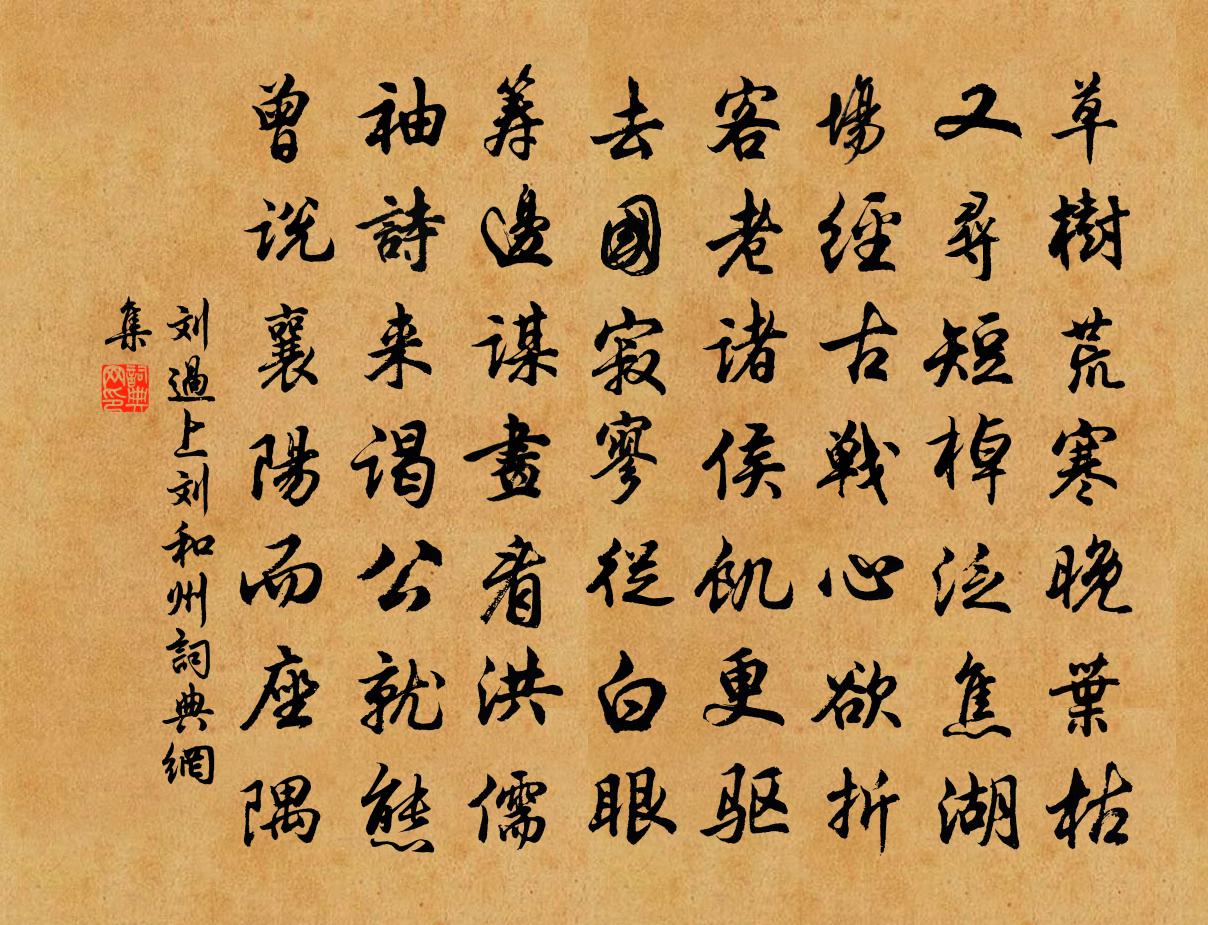 草樹荒寒晚葉枯
又尋短棹泛焦湖
場經古戰心欲折
客老諸侯飢更驅
去國寂寥從白眼
筹邊謀畫看洪儒
袖詩来謁公就熊
曾说襄陽而座隅
刘過上刘和州詞典網
集
詞典网印